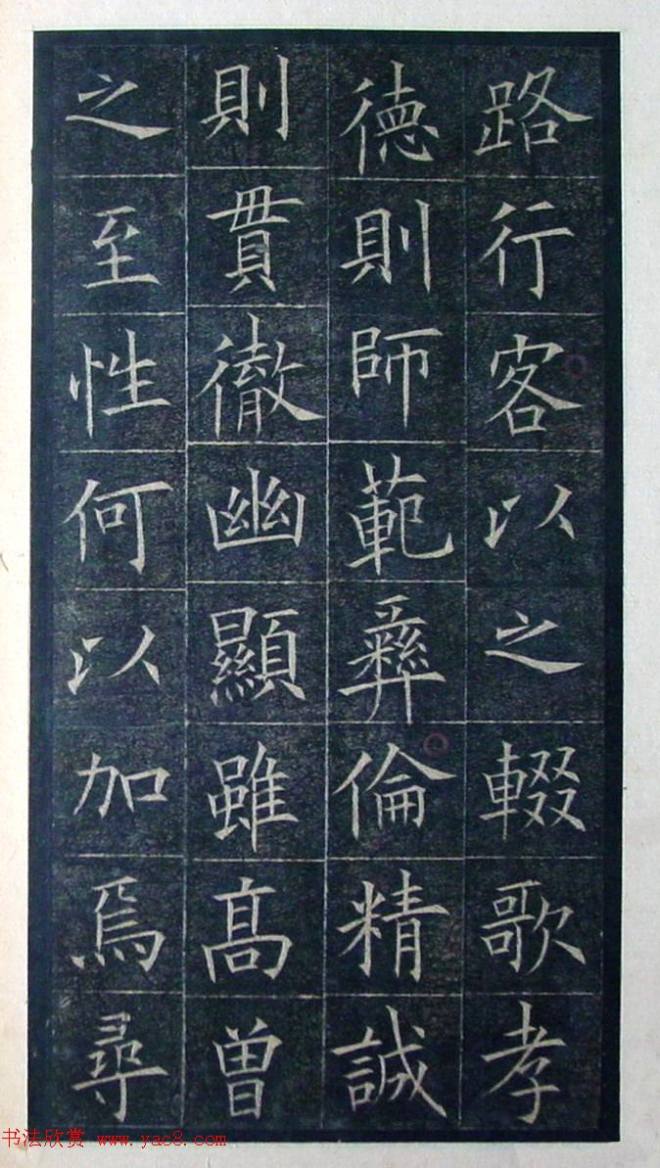 路行客以之輟歌孝
德則師範彝倫精誠
則貫徹幽顯雖高曾
之至性何以加焉尋
书法欣赏 www.yac8.com